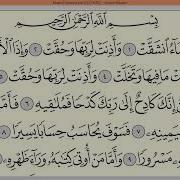 بِسْمِ ٱللَّهِ ٱلرَّحْمَٰنِ ٱلرَّحِيمِ
مَآءُ ٱنشَقَّتْ ١ وَأَذِنَتْ لِرَبِّهَا وَحُقَّتْ ٢ وَإِذَا
مَا فِيهَا وَتَخَلَّتْ ٤ وَأَذِنَتْ لِرَبِّهَا وَحُقَّتْ ٥
إِنَّكَ كَادِحٌ إِلَىٰ رَبِّكَ كَدْحًا فَمُلَٰقِيهِ ٦ فَأَمَّا
بِيَمِينِهِۦ ٧ فَسَوْفَ يُحَاسَبُ حِسَابًا يَسِيرًا ٨
مَسْرُورًا ٩ وَأَمَّا مَنْ أُوتِىَ كِتَٰبَهُۥ وَرَآءَ ظَهْرِهِۦ